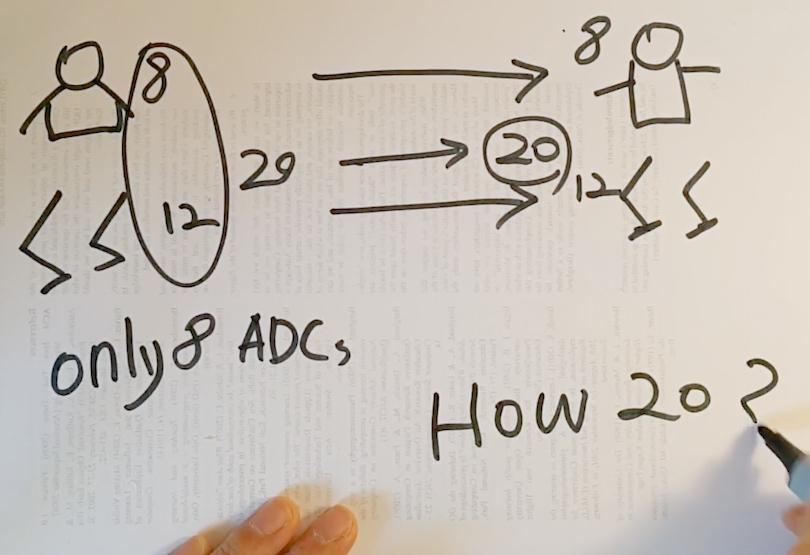 8
8
20
20
12
12
only 8 ADCs
HOW 20?